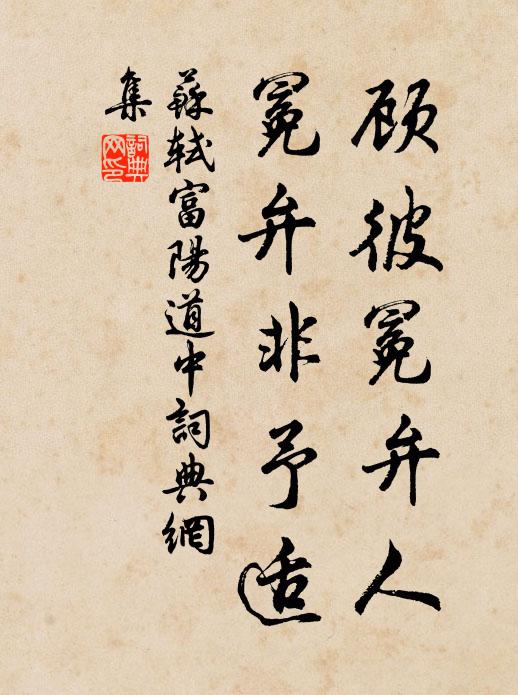 顾彼冕弁人
冕弁非予适
蘇轼富陽道中詞典網
集
詞典網印